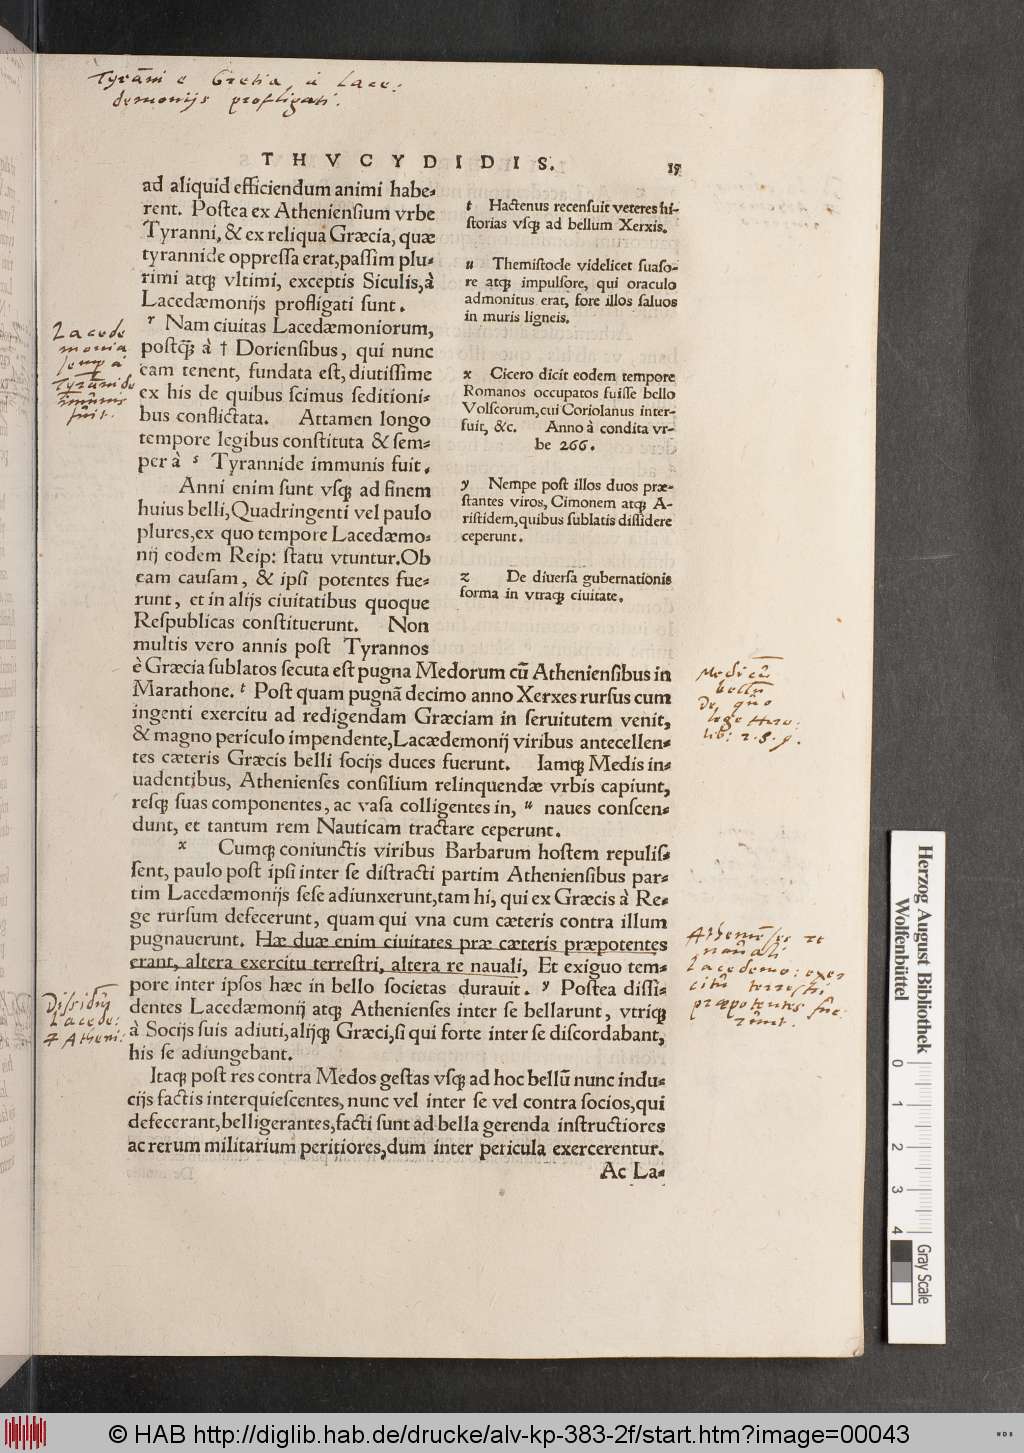 Tyrāni e Gretia à Lace:
demonijs profligati.
THVCYDIDIS.
19
ad aliquid efficiendum animi habe⸗
rent. Poſtea ex Athenienſium vrbe
Tyranni, & ex reliqua Græcia, quæ
tyrannide oppreſſa erat, paſſim plu⸗
rimi atq; vltimi, exceptis Siculis, à
Lacedæmonijs profligati ſunt.
r Nam ciuitas Lacedæmoniorum,
poſtq̃; à † Dorienſibus, qui nunc
eam tenent, fundata eſt, diutiſſime
ex his de quibus ſcimus ſeditioni⸗
bus conflictata. Attamen longo
tempore legibus conſtituta & ſem⸗
per à s Tyrannide immunis fuit.
Anni enim ſunt vſq; ad finem
huius belli, Quadringenti vel paulo
plures, ex quo tempore Lacedæmo⸗
nij eodem Reip: ſtatu vtuntur. Ob
eam cauſam, & ipſi potentes fue⸗
runt, et in alijs ciuitatibus quoque
Reſpublicas conſtituerunt. Non
multis vero annis poſt Tyrannos
è Græcia ſublatos ſecuta eſt pugna Medorum cū Athenienſibus in
Marathone. t Poſt quam pugnā decimo anno Xerxes rurſus cum
ingenti exercitu ad redigendam Græciam in ſeruitutem venit,
& magno periculo impendente, Lacædemonij viribus antecellen⸗
tes cæteris Græcis belli ſocijs duces fuerunt. Iamq; Medis in⸗
uadentibus, Athenienſes conſilium relinquendæ vrbis capiunt,
reſq; ſuas componentes, ac vaſa colligentes in, u naues conſcen⸗
dunt, et tantum rem Nauticam tractare ceperunt.
x Cumq; coniunctis viribus Barbarum hoſtem repuliſ⸗
ſent, paulo poſt ipſi inter ſe diſtracti partim Athenienſibus par⸗
tim Lacedæmonijs ſeſe adiunxerunt, tam hi, qui ex Græcis à Re⸗
ge rurſum defecerunt, quam qui vna cum cæteris contra illum
pugnauerunt. Hæ duæ enim ciuitates præ cæteris præpotentes
erant, altera exercitu terreſtri, altera re nauali, Et exiguo tem⸗
pore inter ipſos hæc in bello ſocietas durauit. y Poſtea diſſi⸗
dentes Lacedæmonij atq; Athenienſes inter ſe bellarunt, vtriq;
à Socijs ſuis adiuti, alijq; Græci, ſi qui forte inter ſe diſcordabant,
his ſe adiungebant.
Itaq; poſt res contra Medos geſtas vſq; ad hoc bellū nunc indu⸗
cijs factis interquieſcentes, nunc vel inter ſe vel contra ſocios, qui
defecerant, belligerantes, facti ſunt ad bella gerenda inſtructiores
ac rerum militarium peritiores, dum inter pericula exercerentur.
Ac La⸗
t Hactenus recenſuit veteres hi-
ſtorias vſq; ad bellum Xerxis.
u Themiſtocle videlicet ſuaſo-
re atq; impulſore, qui oraculo
admonitus erat, fore illos ſaluos
in muris ligneis.
x Cicero dicit eodem tempore
Romanos occupatos fuiſſe bello
Volſcorum, cui Coriolanus inter-
fuit, &c. Anno à condita vr-
be 266.
y Nempe poſt illos duos præ-
ſtantes viros, Cimonem atq; A-
riſtidem, quibus ſublatis diſſidere
ceperunt.
z De diuerſa gubernationis
forma in vtraq; ciuitate.
Lacede
monia
semp à
Tyrānide
imūnis
fuit.
Medicū
bellū
De quo
lege Hero:
lib:
Athenieses et
nauali
Lacedemo: exer
citu terrestri
præpotentes fue:
rūnt.
Dissidiū
Lacede:
& Atheni:
Herzog August Bibliothek
Wolfenbüttel
0 1 2 3 4
Gray Scale
© HAB http://diglib.hab.de/drucke/alv-kp-383-2f/start.htm?image=00043